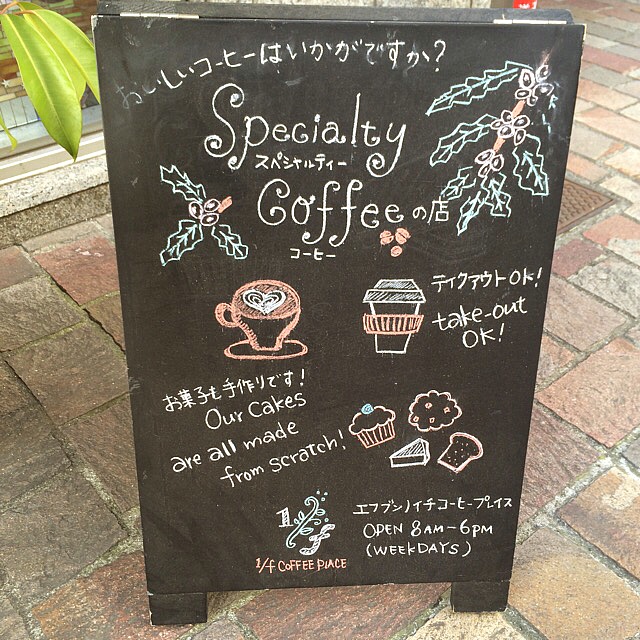 おいしいコーヒーはいかがですか?
Specialty
スペシャルティー
Coffeeの店
コーヒー
テイクアウトOK!
take-out
OK!
お菓子も手作りです!
Our cakes
are all made
from scratch!
1/f
1/f COFFEE PLACE
エフブンノイチコーヒープレイス
OPEN 8AM-6PM
(WEEKDAYS)